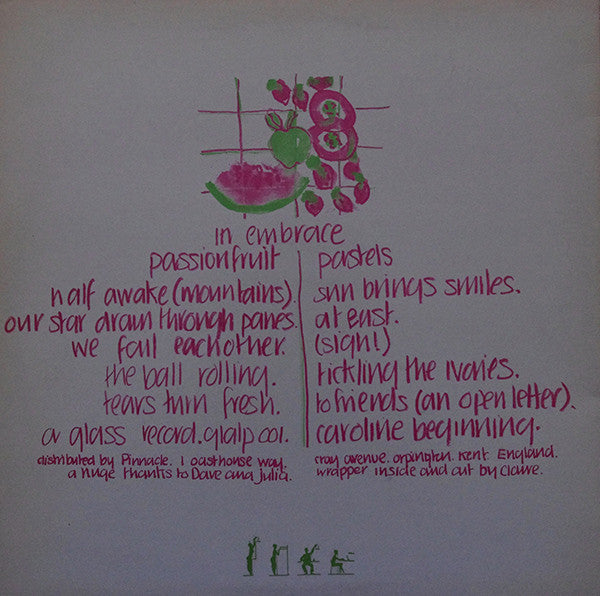 in embrace
passionfruit
half awake (mountains).
our star drawn through panes.
we fail eachother.
the ball rolling.
tears turn fresh.
a glass record. glalp 001.
distributed by Pinnacle. 1 oasthouse way.
a huge thanks to Dave and Julia.
pastels
sun brings smiles.
at east.
(sigh!)
tickling the ivories.
to friends (an open letter).
caroline beginning.
cray avenue. orpington. Kent. England.
wrapper inside and out by Claire.